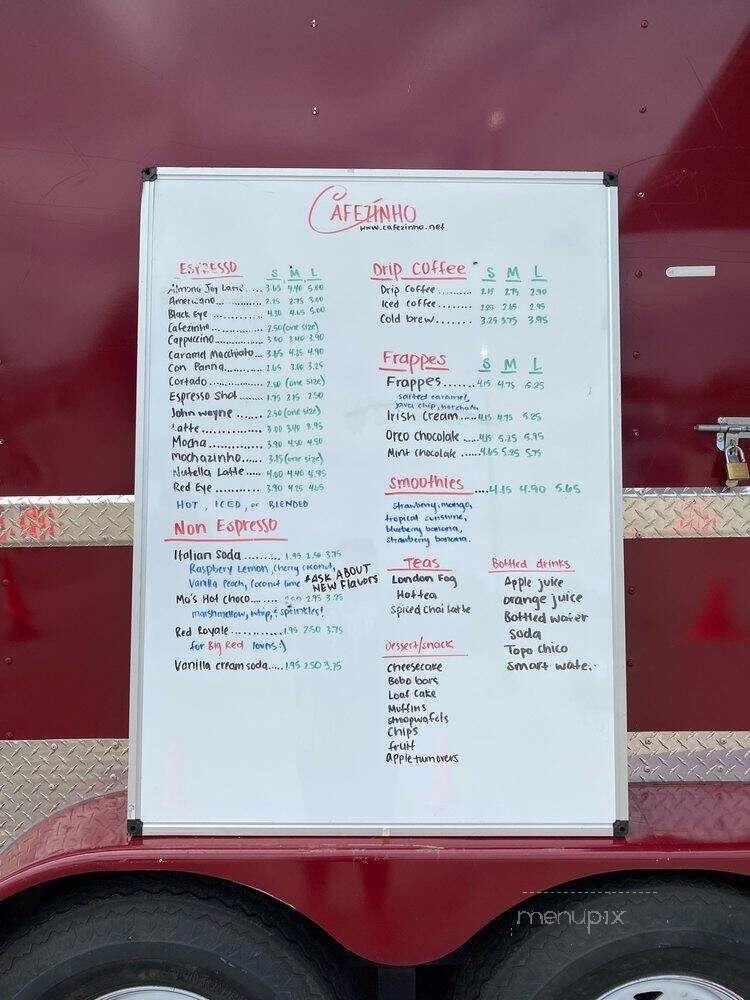 CAFEZINHO
www.cafezinho.net
ESPRESSO S M L
Almond Joy Latte..... 3.65 4.40 5.00
Americano............ 2.25 2.75 3.00
Black Eye ............ 4.30 4.65 5.00
Cafezinho............ 2.50 (one size)
Cappuccino........... 3.00 3.40 3.90
Caramel Macchiato... 3.65 4.25 4.90
Con Panna............ 2.65 3.00 3.25
Cortado.............. 2.50 (one size)
Espresso Shot........ 1.75 2.15 2.50
John Wayne.......... 2.50 (one size)
Latte................ 3.00 3.40 3.95
Mocha............... 3.90 4.50 4.50
Mochazinho..... 3.15 (one size)
Nutella Latte..... 4.00 4.40 4.95
Red Eye............. 3.90 4.25 4.65
HOT, ICED, or BLENDED
Non Espresso
Italian Soda.......... 1.95 2.50 3.75
Raspbery Lemon, Cherry Coconut,
Vanilla Peach, Coconut lime *ASK ABOUT
NEW Flavors
Mo's Hot choco...... 2.95 3.25
marshmellow, whip, & sprinkles!
Red Royale........... 1.95 2.50 3.75
for Big Red lovers :)
Vanilla cream soda..... 1.95 2.50 3.75
Drip Coffee S M L
Drip Coffee .......... 2.15 2.75 2.90
Iced coffee........ 2.25 2.65 2.95
Cold brew....... 3.25 3.75 3.95
Frappes S M L
Frappes....... 4.15 4.75 5.25
salted caramel,
java chip, horchata
Irish Cream.... 4.15 4.75 5.25
Oreo chocolate .... 4.15 5.25 5.95
Mint chocolate .... 4.65 5.25 5.75
Smoothies .... 4.15 4.90 5.65
strawberry, mango,
tropical sunshine,
blueberry banana,
strawberry banana.
Teas
London Fog
Hot tea
Spiced chai latte
Bottled drinks
Apple juice
orange juice
Bottled water
Soda
Topo chico
Smart wate..
Dessert/snack
Cheesecake
Bobo bars
Loaf Cake
Muffins
stroopwafels
Chips
fruit
apple turnovers
menupix